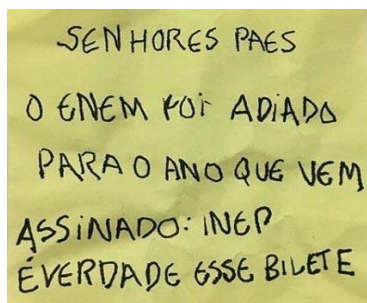 SENHORES PAES
O ENEM FOI ADIADO
PARA O ANO QUE VEM
ASSINADO: INEP
É VERDADE ESSE BILETE